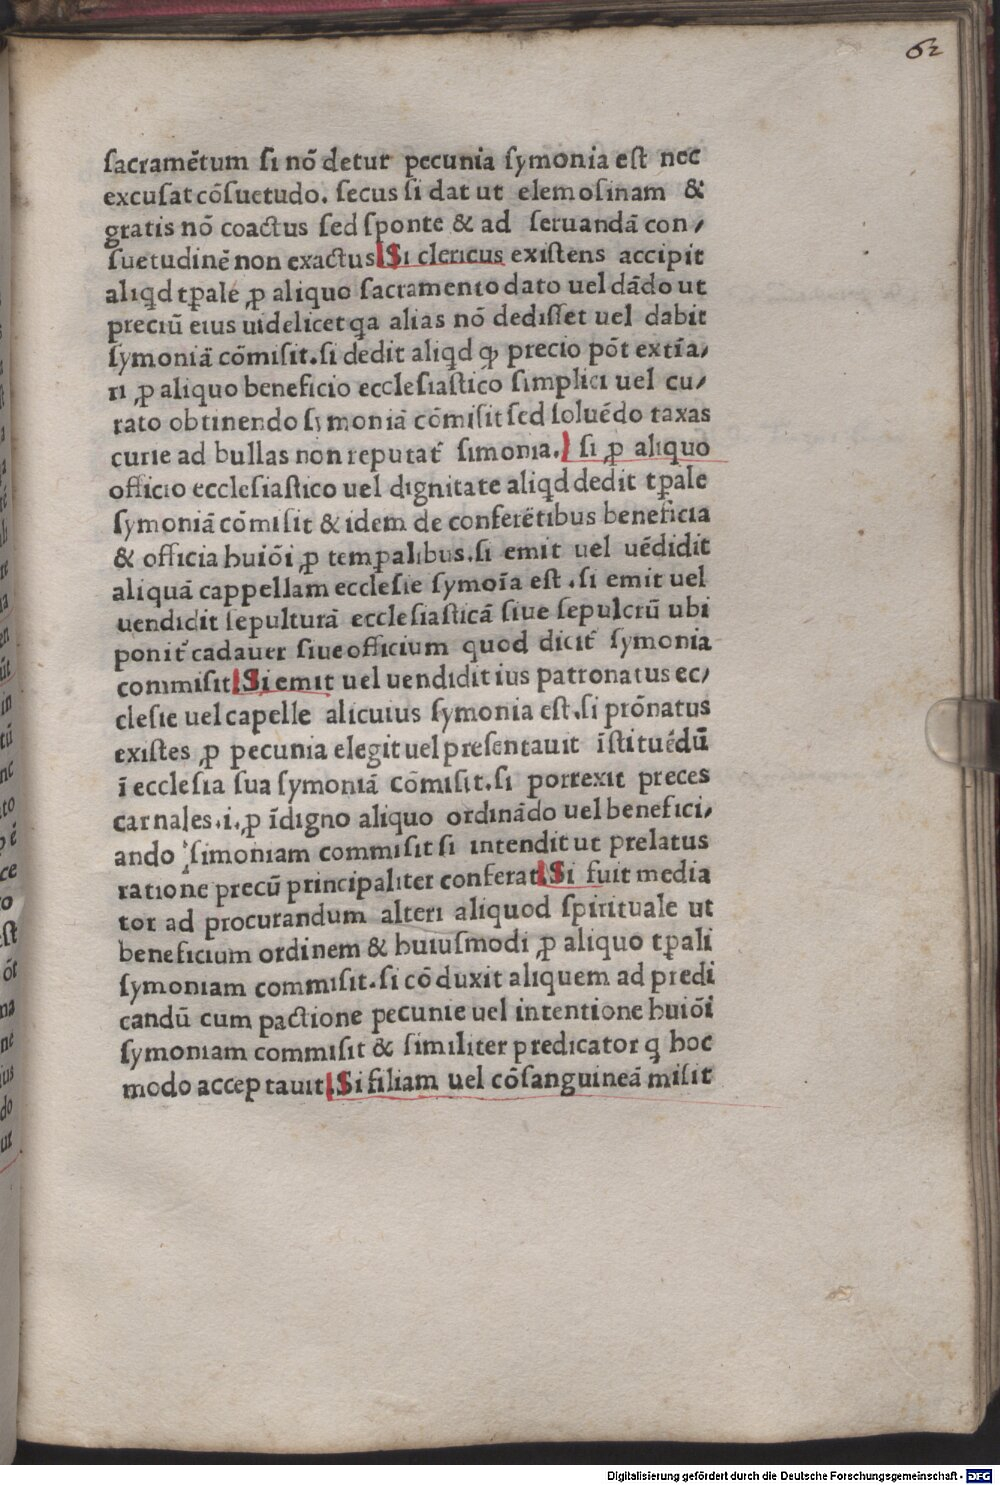 62
ſacramētum ſi nō detur pecunia ſymonia eſt nec
excuſat cōſuetudo. ſecus ſi dat ut elemoſinam &
gratis nō coactus ſed ſponte & ad ſeruandā con/
ſuetudinē non exactus Si clericus exiſtens accipit
aliqd tꝑale ꝓ aliquo ſacramento dato uel dādo ut
preciū eius uidelicet qa alias nō dediſſet uel dabit
ſymoniā cōmiſit. ſi dedit aliqd ꝙ precio pōt extīa/
ri ꝓ aliquo beneficio eccleſiaſtico ſimplici uel cu/
rato obtinendo ſymoniā cōmiſit ſed ſoluēdo taxas
curie ad bullas non reputat̄ ſimonia. ſi ꝓ aliquo
officio eccleſiaſtico uel dignitate aliqd dedit tꝑale
ſymoniā cōmiſit & idem de conferētibus beneficia
& officia huiōi ꝓ temꝑalibus. ſi emit uel uēdidit
aliquā cappellam eccleſie ſymoīa eſt. ſi emit uel
uendidit ſepulturā eccleſiaſticā ſiue ſepulcrū ubi
ponit̄ cadauer ſiue officium quod dicit̄ ſymonia
commiſit. Si emit uel uendidit ius patronatus ec/
cleſie uel capelle alicuius ſymonia eſt. ſi prōnatus
exiſtēs ꝓ pecunia elegit uel preſentauit īſtituēdū
ī eccleſia ſua ſymoniā cōmiſit. ſi porrexit preces
carnales .i. ꝓ īdigno aliquo ordinādo uel benefici/
ando ſimoniam commiſit ſi intendit ut prelatus
ratione precū principaliter conferat. Si fuit media
tor ad procurandum alteri aliquod ſpirituale ut
beneficium ordinem & huiuſmodi ꝓ aliquo tꝑali
ſymoniam commiſit. ſi cōduxit aliquem ad predi
candū cum pactione pecunie uel intentione huiōi
ſymoniam commiſit & ſimiliter predicator q hoc
modo acceptauit. Si filiam uel cōſanguineā miſit
Digitalisierung gefördert durch die Deutsche Forschungsgemeinschaft - DFG